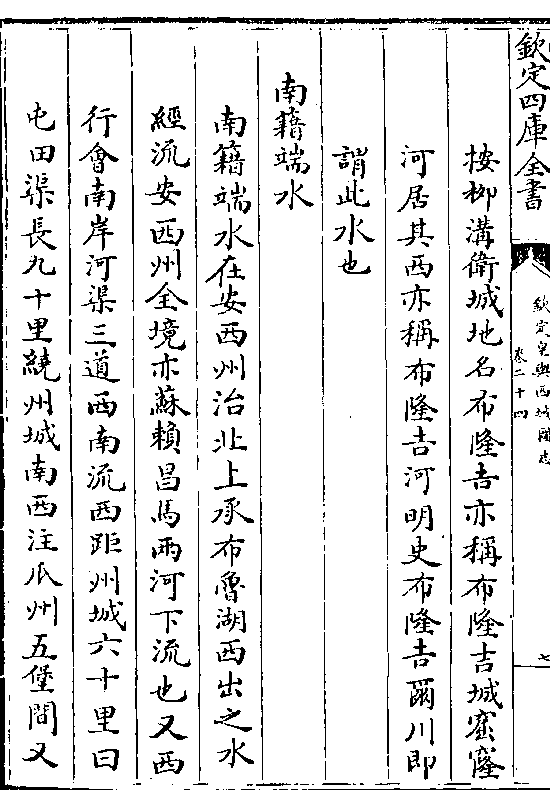 欽定四庫全書
欽定皇輿西域圖志
卷二十四
七
按柳溝衛城地名布隆吉亦稱布隆吉城窟窿
河居其西亦稱布隆吉河明史布隆吉爾川即
謂此水也
南籍端水
南籍端水在安西州治北上承布魯湖西出之水
經流安西州全境亦蘇賴昌馬兩河下流也又西
行會南岸河渠三道西南流西距州城六十里曰
屯田渠長九十里繞州城南西注瓜州五堡間又